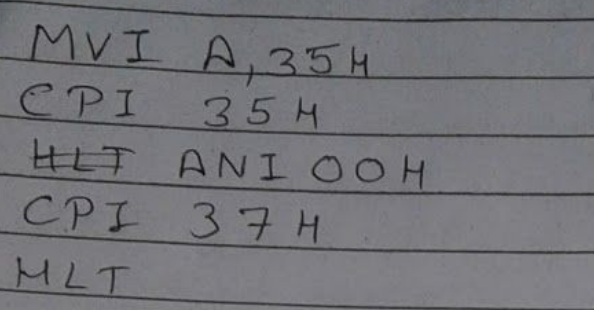 MVI A,35H
CPI 35H
HLT ANI 00H
CPI 37H
HLT